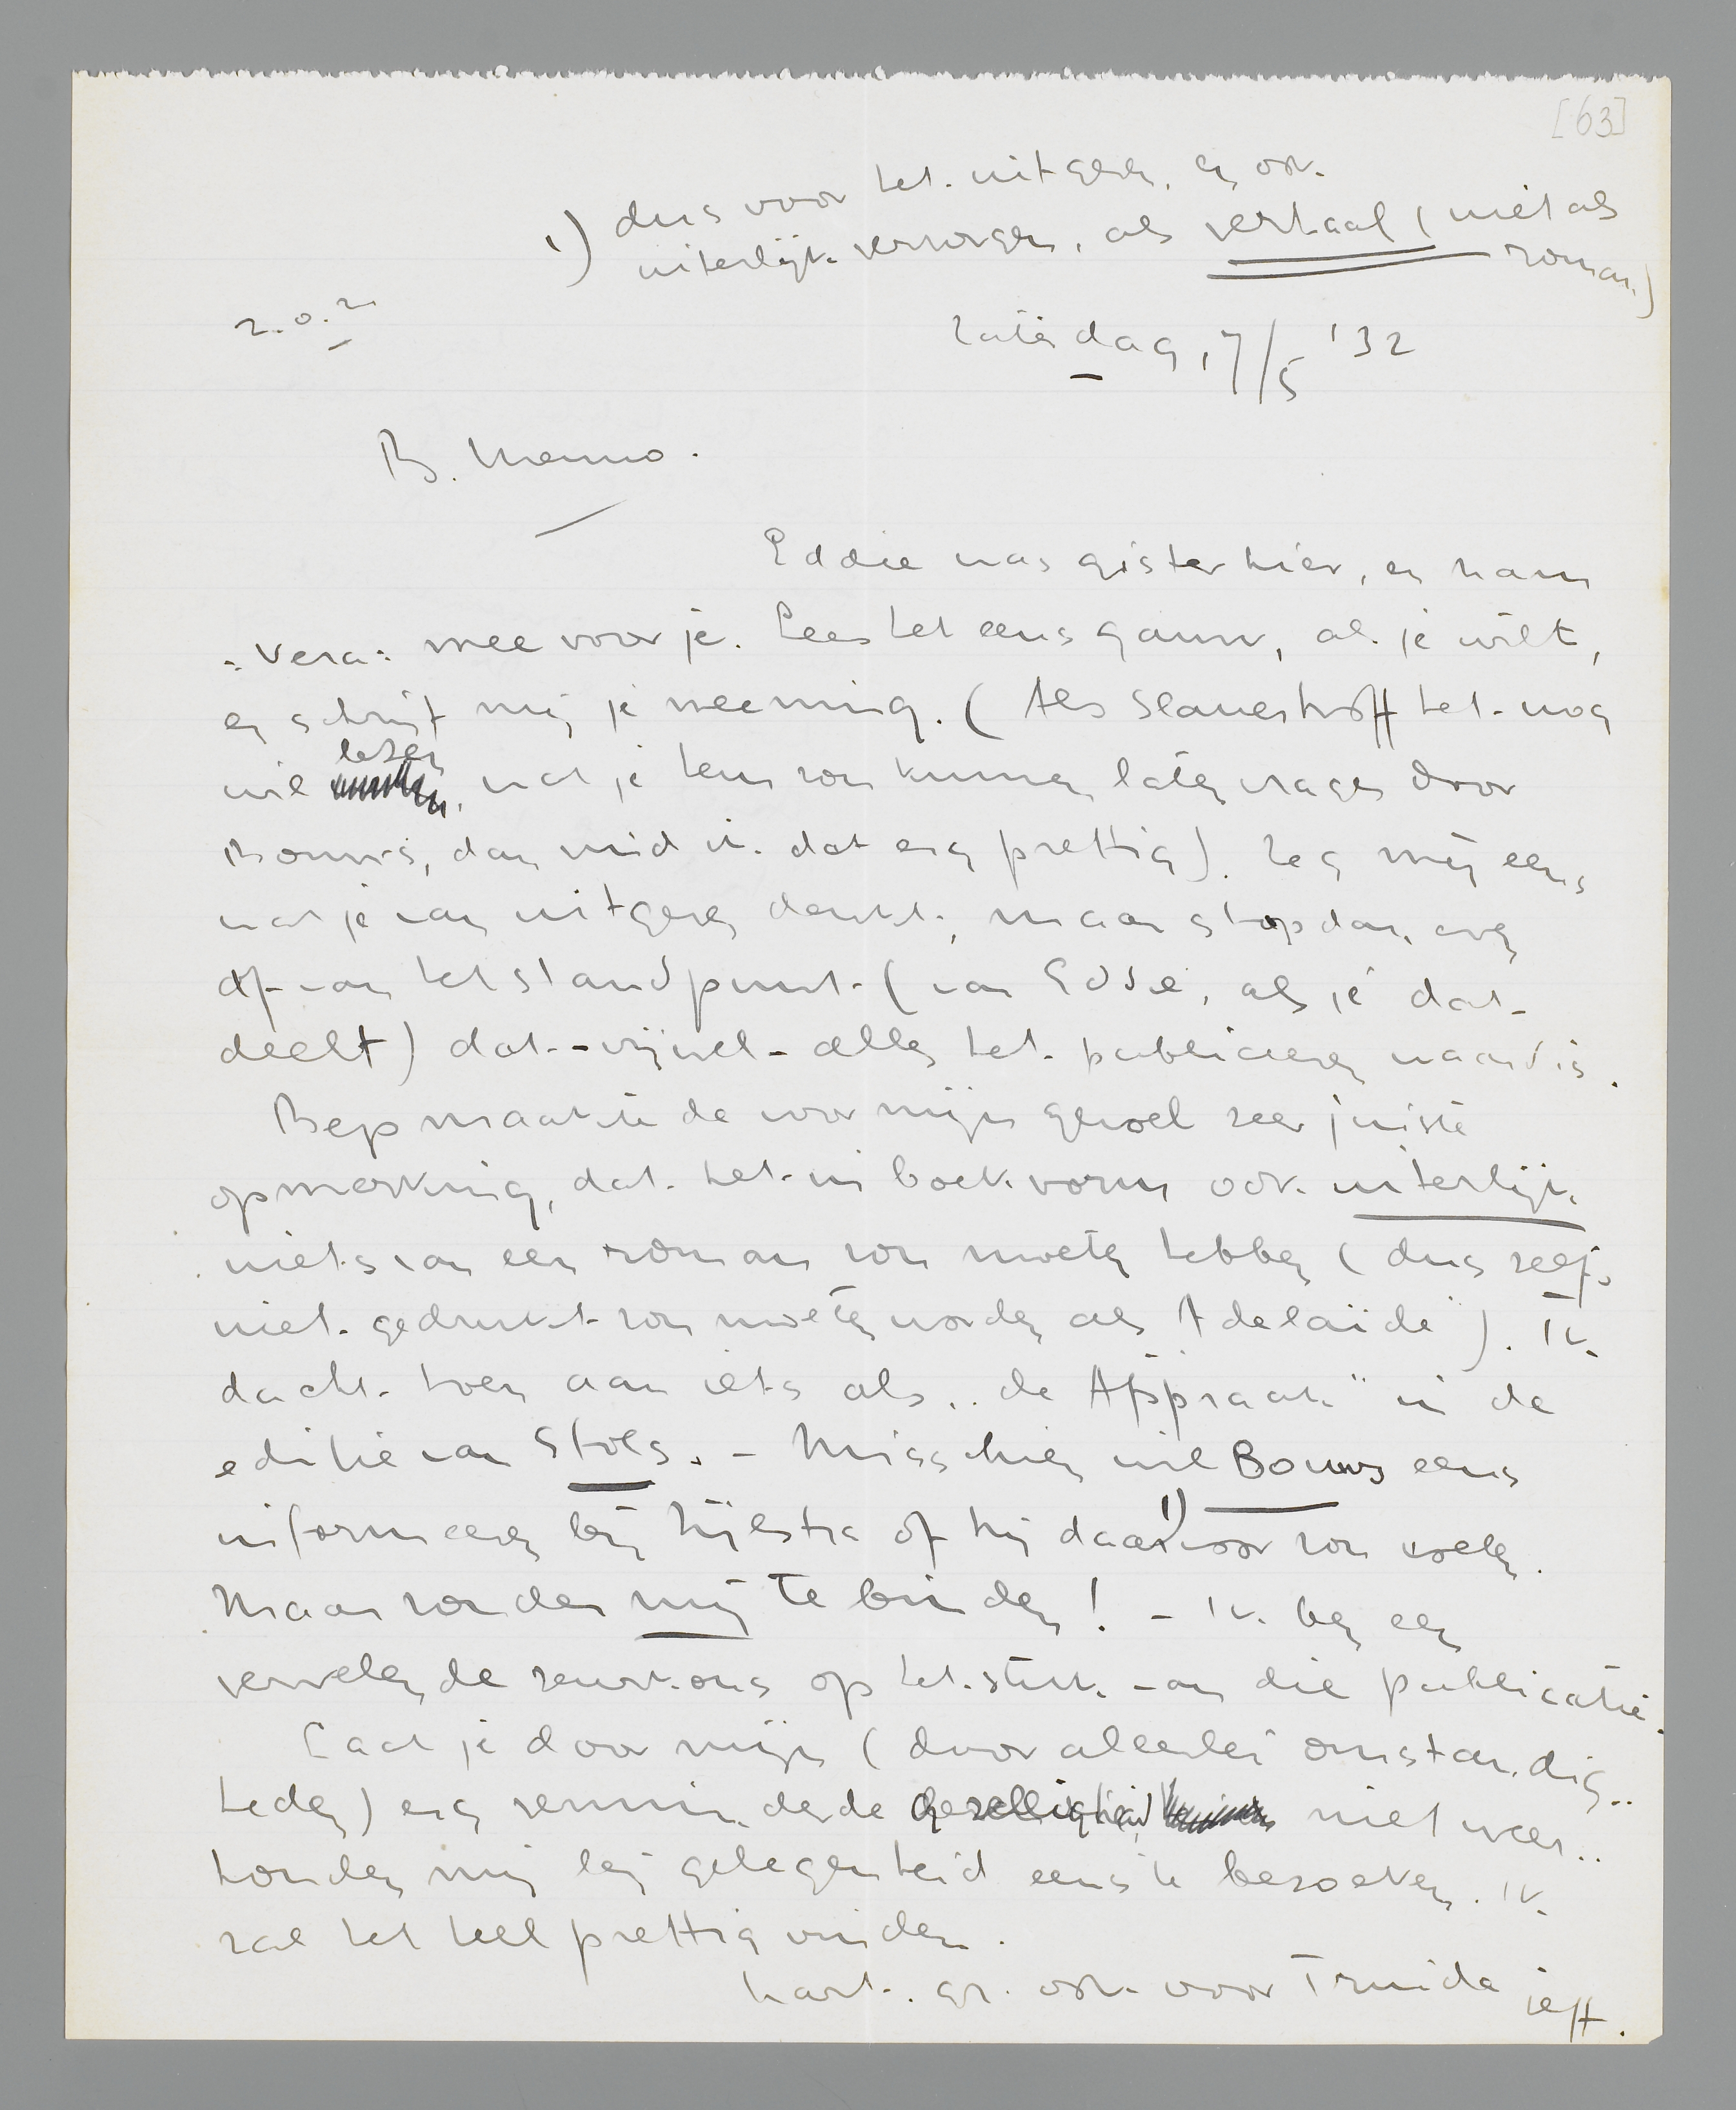 [63]
1) dus voor het uitgeven, en ook
uiterlijk verzorgen, als verhaal (niet als
roman)
z.o.z.
Zaterdag, 7/5 '32
B. Menno.
Eddie was gister hier, en nam
"Vera" mee voor je. Lees het eens gauw, als je wilt,
en schrijf mij je meening. (Als Slauerhoff het nog
lezen
wil, wat je hem zou kunnen laten vragen door
Bouws, dan vind ik dat erg prettig). Zeg mij eens
wat je van uitgeven denkt, maar stap dan even
af van het standpunt (van Eddie, als je dat
deelt) dat - vrijwel - alles het publiceeren waard is.
Bep maakte de voor mijn gevoel zeer juiste
opmerking, dat het in boekvorm ook uiterlijk
niets van een roman zou moeten hebben (dus zelfs
niet gedrukt zou moeten worden als "Adelaïde"). Ik
dacht toen aan iets als "de Afspraak" in de
editie van Stols. - Misschien wil Bouws eens
informeeren bij Zijlstra of hij daar 1) voor zou voelen.
Maar zonder mij te binden! - Ik ben een
vervelende zeurkous op het stuk van die publicatie.
Laat je door mijn (door allerlei omstandig-
heden) erg verminderde gezelligheid niet weer-
houden mij bij gelegenheid eens te bezoeken. Ik
zal het heel prettig vinden.
hart. gr. ook voor Truida
jeff.